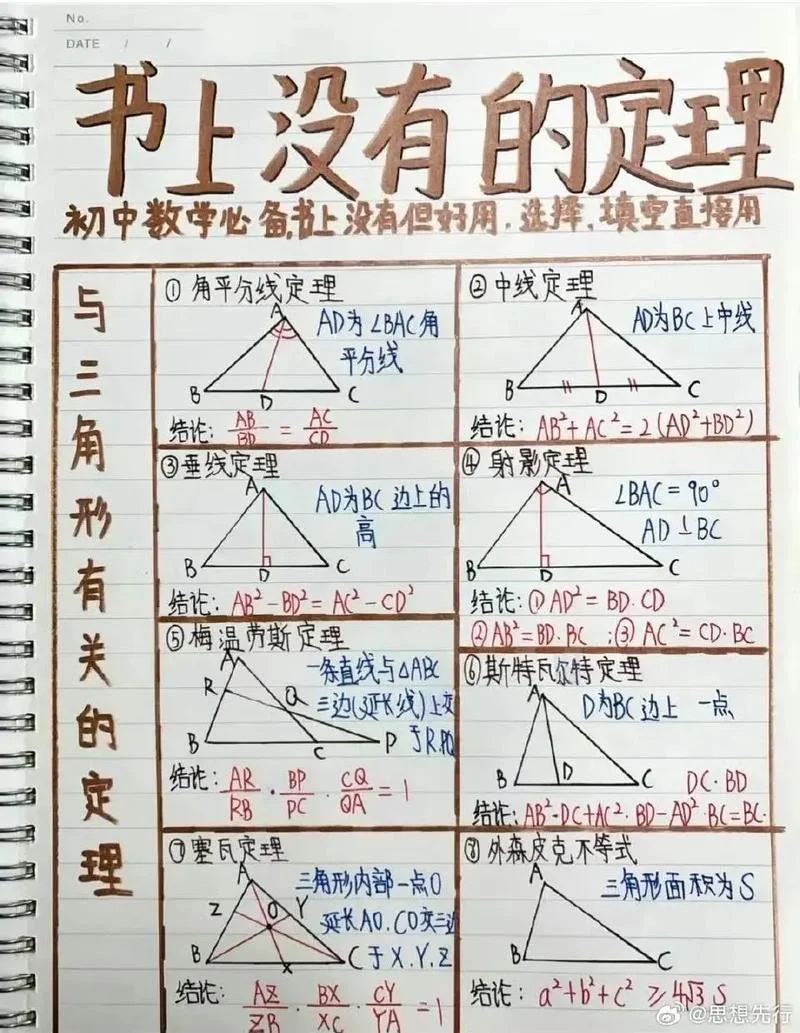 No.
DATE / /
书上没有的定理
初中数学必备,书上没有但好用.选择,填空直接用
与三角形有关的定理
① 角平分线定理
A
B
D
C
AD为∠BAC角
平分线
结论: AB/BD = AC/CD
② 中线定理
A
B
D
C
AD为BC上中线
结论: AB²+AC²=2(AD²+BD²)
③垂线定理
A
B
D
C
AD为BC边上的
高
结论: AB²-BD²=AC²-CD²
④ 射影定理
A
B
D
C
∠BAC=90°
AD⊥BC
结论:①AD²=BD·CD
②AB²=BD·BC ;③AC²=CD·BC
⑤梅温劳斯定理
A
R
Q
B
C
P
一条直线与△ABC
三边(延长线)上交
于R.PQ
结论: AR/RB · BP/PC · CQ/QA =1
⑥斯特瓦尔特定理
A
B
D
C
D为BC边上 一点
DC·BD
结论:AB²·DC+AC²·BD-AD²·BC=BC·
⑦塞瓦定理
A
Z
O
Y
B
X
C
三角形内部一点O
延长AO.CO交三边
于X.Y.Z
结论: AZ/ZB · BX/XC · CY/YA =1
⑧外森皮克不等式
A
B
C
三角形面积为S
结论: a²+b²+c² ≥4√3 S
@思想先行